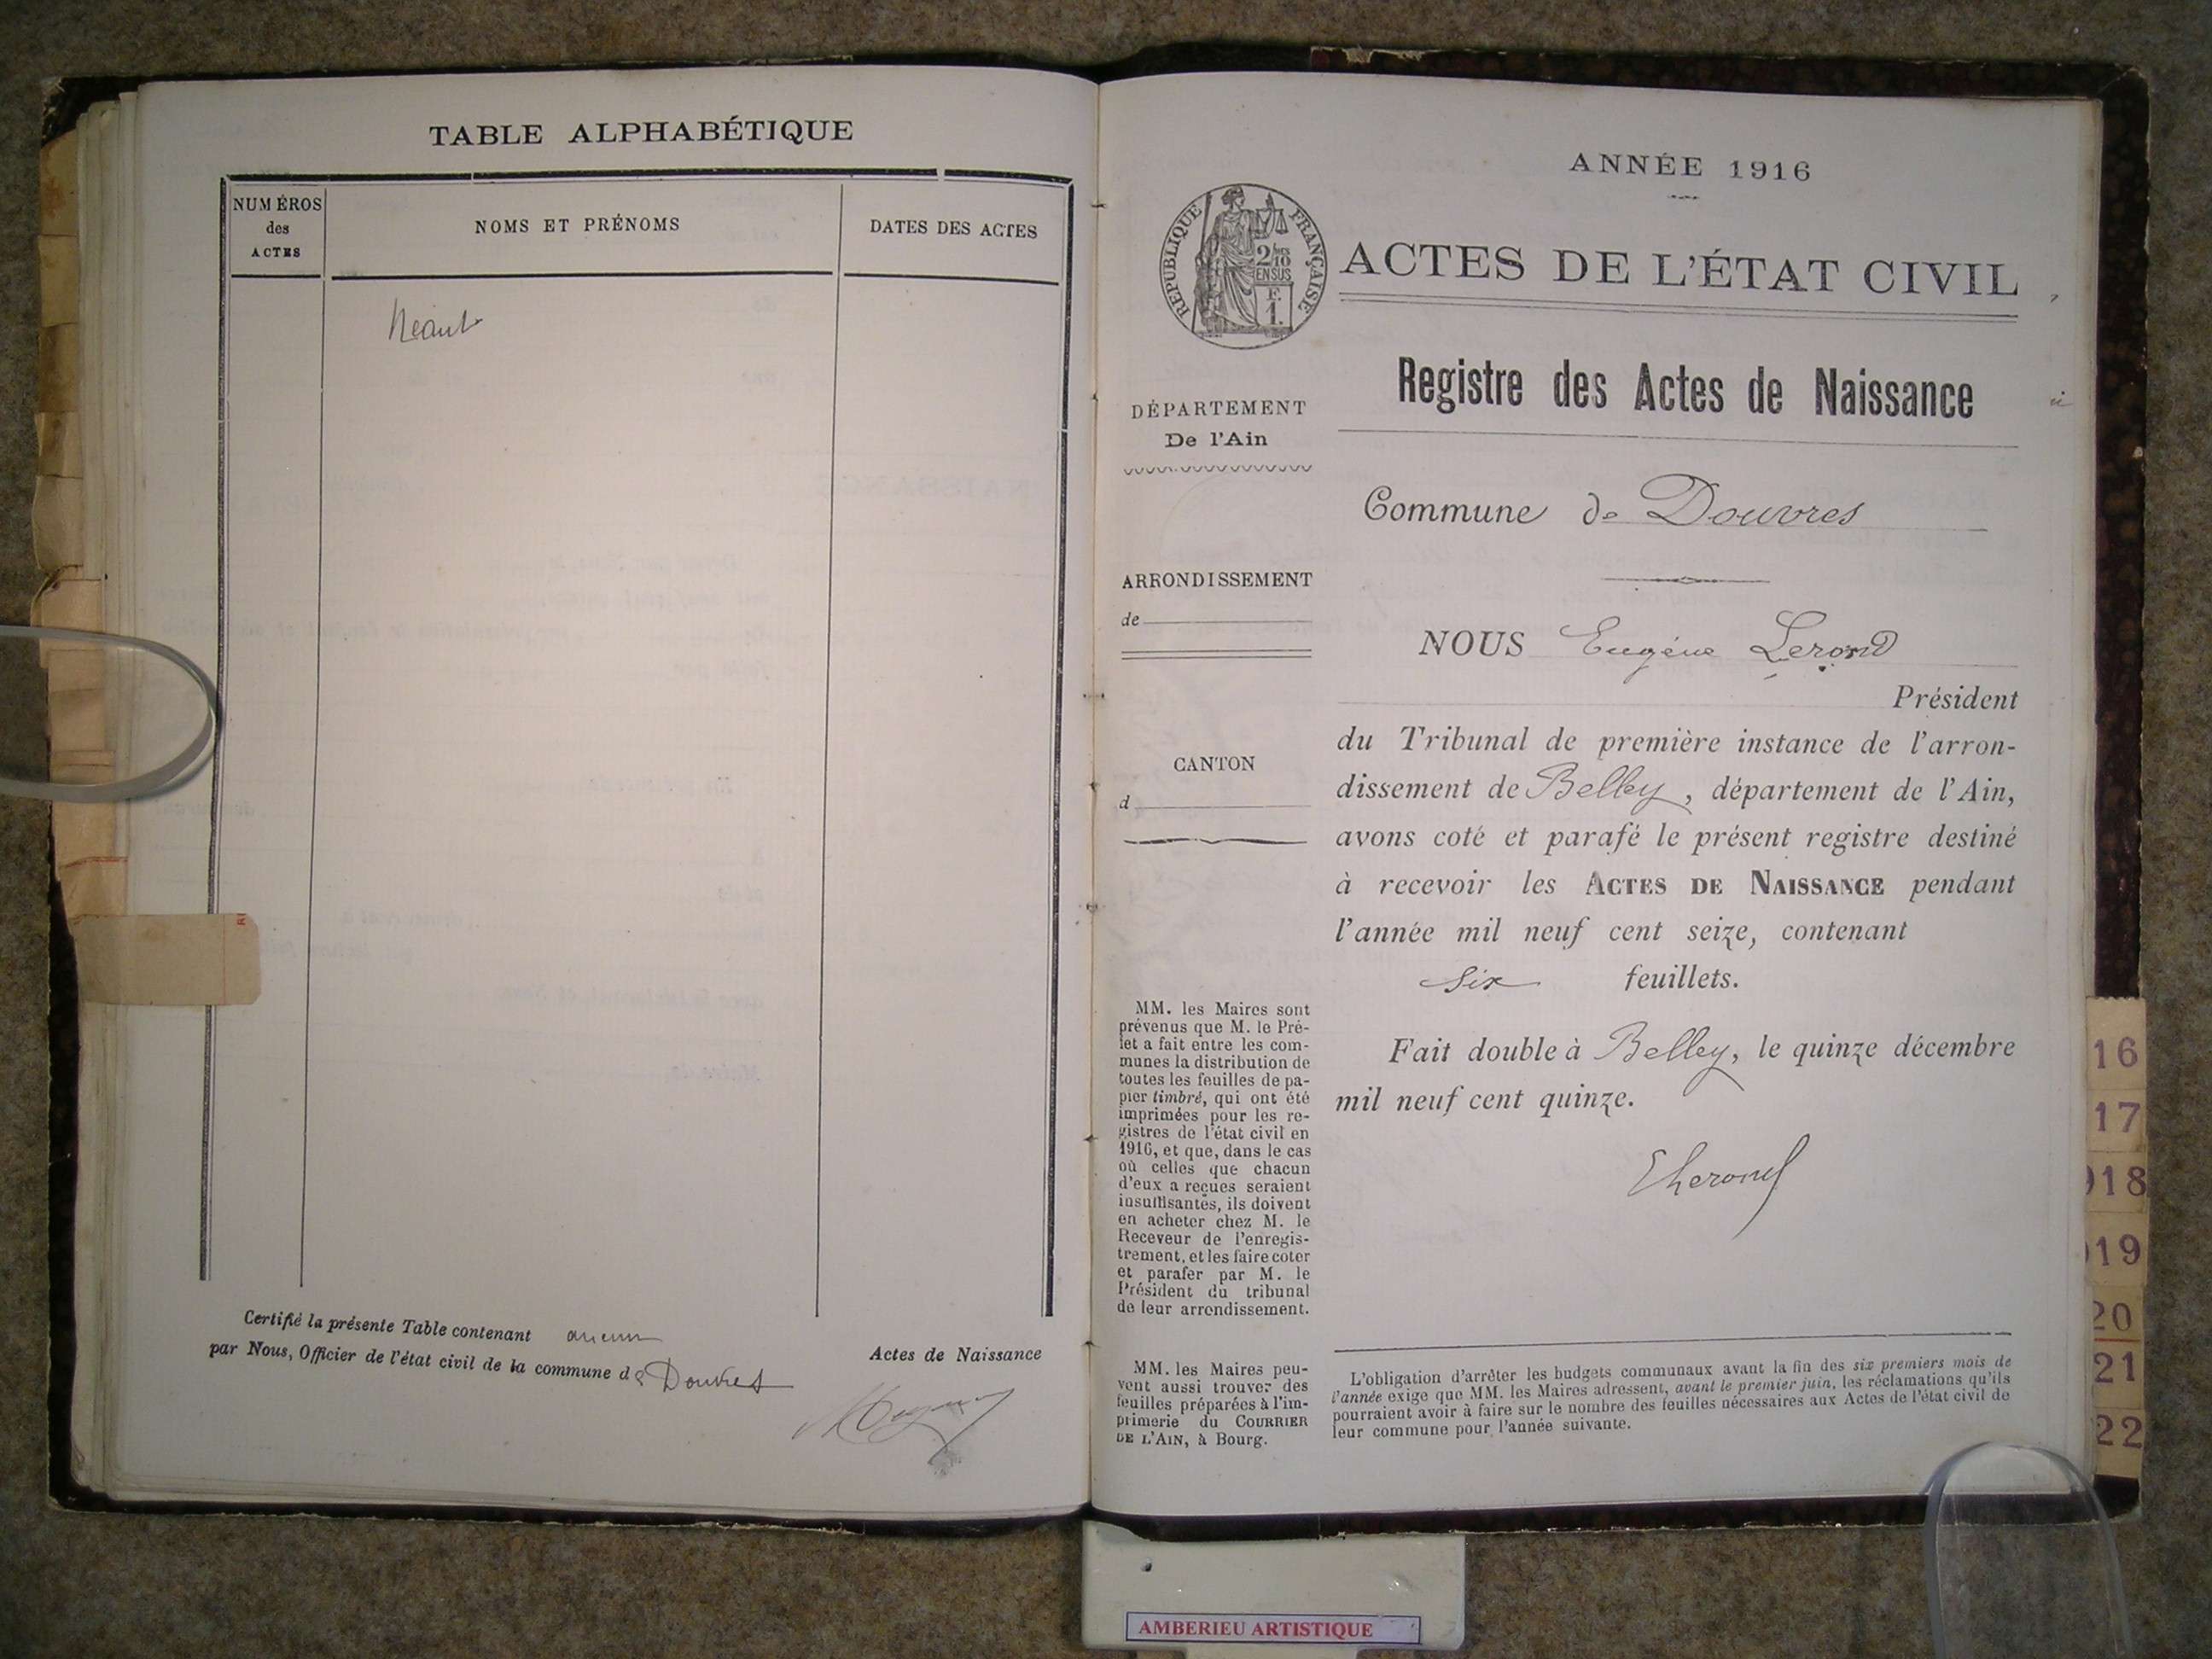 TABLE ALPHABÉTIQUE
NUMÉROS
des
ACTES
NOMS ET PRÉNOMS
DATES DES ACTES
Néant
Certifié la présente Table contenant aucun
Actes de Naissance
par Nous, Officier de l'état civil de la commune de Douvres
ANNÉE 1916
RÉPUBLIQUE FRANÇAISE
2/10
EN SUS
F.
1.
ACTES DE L'ÉTAT CIVIL
Registre des Actes de Naissance
DÉPARTEMENT
De l'Ain
Commune de Douvres
ARRONDISSEMENT
de
NOUS Eugène Lerond
Président
du Tribunal de première instance de l'arron-
dissement de Belley, département de l'Ain,
avons coté et parafé le présent registre destiné
à recevoir les ACTES DE NAISSANCE pendant
l'année mil neuf cent seize, contenant
six feuillets.
Fait double à Belley, le quinze décembre
mil neuf cent quinze.
ELerond
CANTON
d
MM. les Maires sont
prévenus que M. le Pré-
fet a fait entre les com-
munes la distribution de
toutes les feuilles de pa-
pier timbré, qui ont été
imprimées pour les re-
gistres de l'état civil en
1916, et que, dans le cas
où celles que chacun
d'eux a reçues seraient
insuffisantes, ils doivent
en acheter chez M. le
Receveur de l'enregis-
trement, et les faire coter
et parafer par M. le
Président du tribunal
de leur arrondissement.
MM. les Maires peu-
vent aussi trouver des
feuilles préparées à l'im-
primerie du COURRIER
DE L'AIN, à Bourg.
L'obligation d'arrêter les budgets communaux avant la fin des six premiers mois de
l'année exige que MM. les Maires adressent, avant le premier juin, les réclamations qu'ils
pourraient avoir à faire sur le nombre des feuilles nécessaires aux Actes de l'état civil de
leur commune pour l'année suivante.
16
17
918
19
20
21
22
AMBERIEU ARTISTIQUE